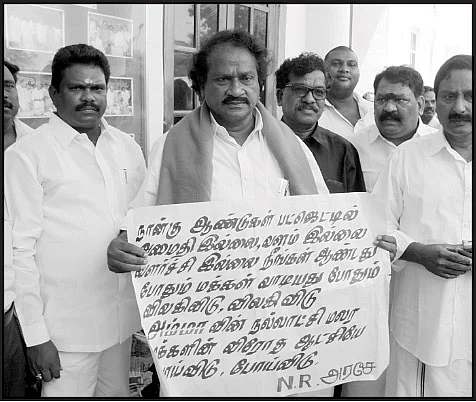 நான்கு ஆண்டுகள் பட்ஜெட்டில்
அமைதி இல்லை, வளம் இல்லை
வளர்ச்சி இல்லை நீங்கள் ஆண்டது
போதும் மக்கள் வாடியது போதும்
விலகிவிடு, விலகி விடு
அம்மா வின் நல்லாட்சி மலர
மக்களின் விரோத ஆட்சியே
போய்விடு, போய்விடு.
N.R. அரசே